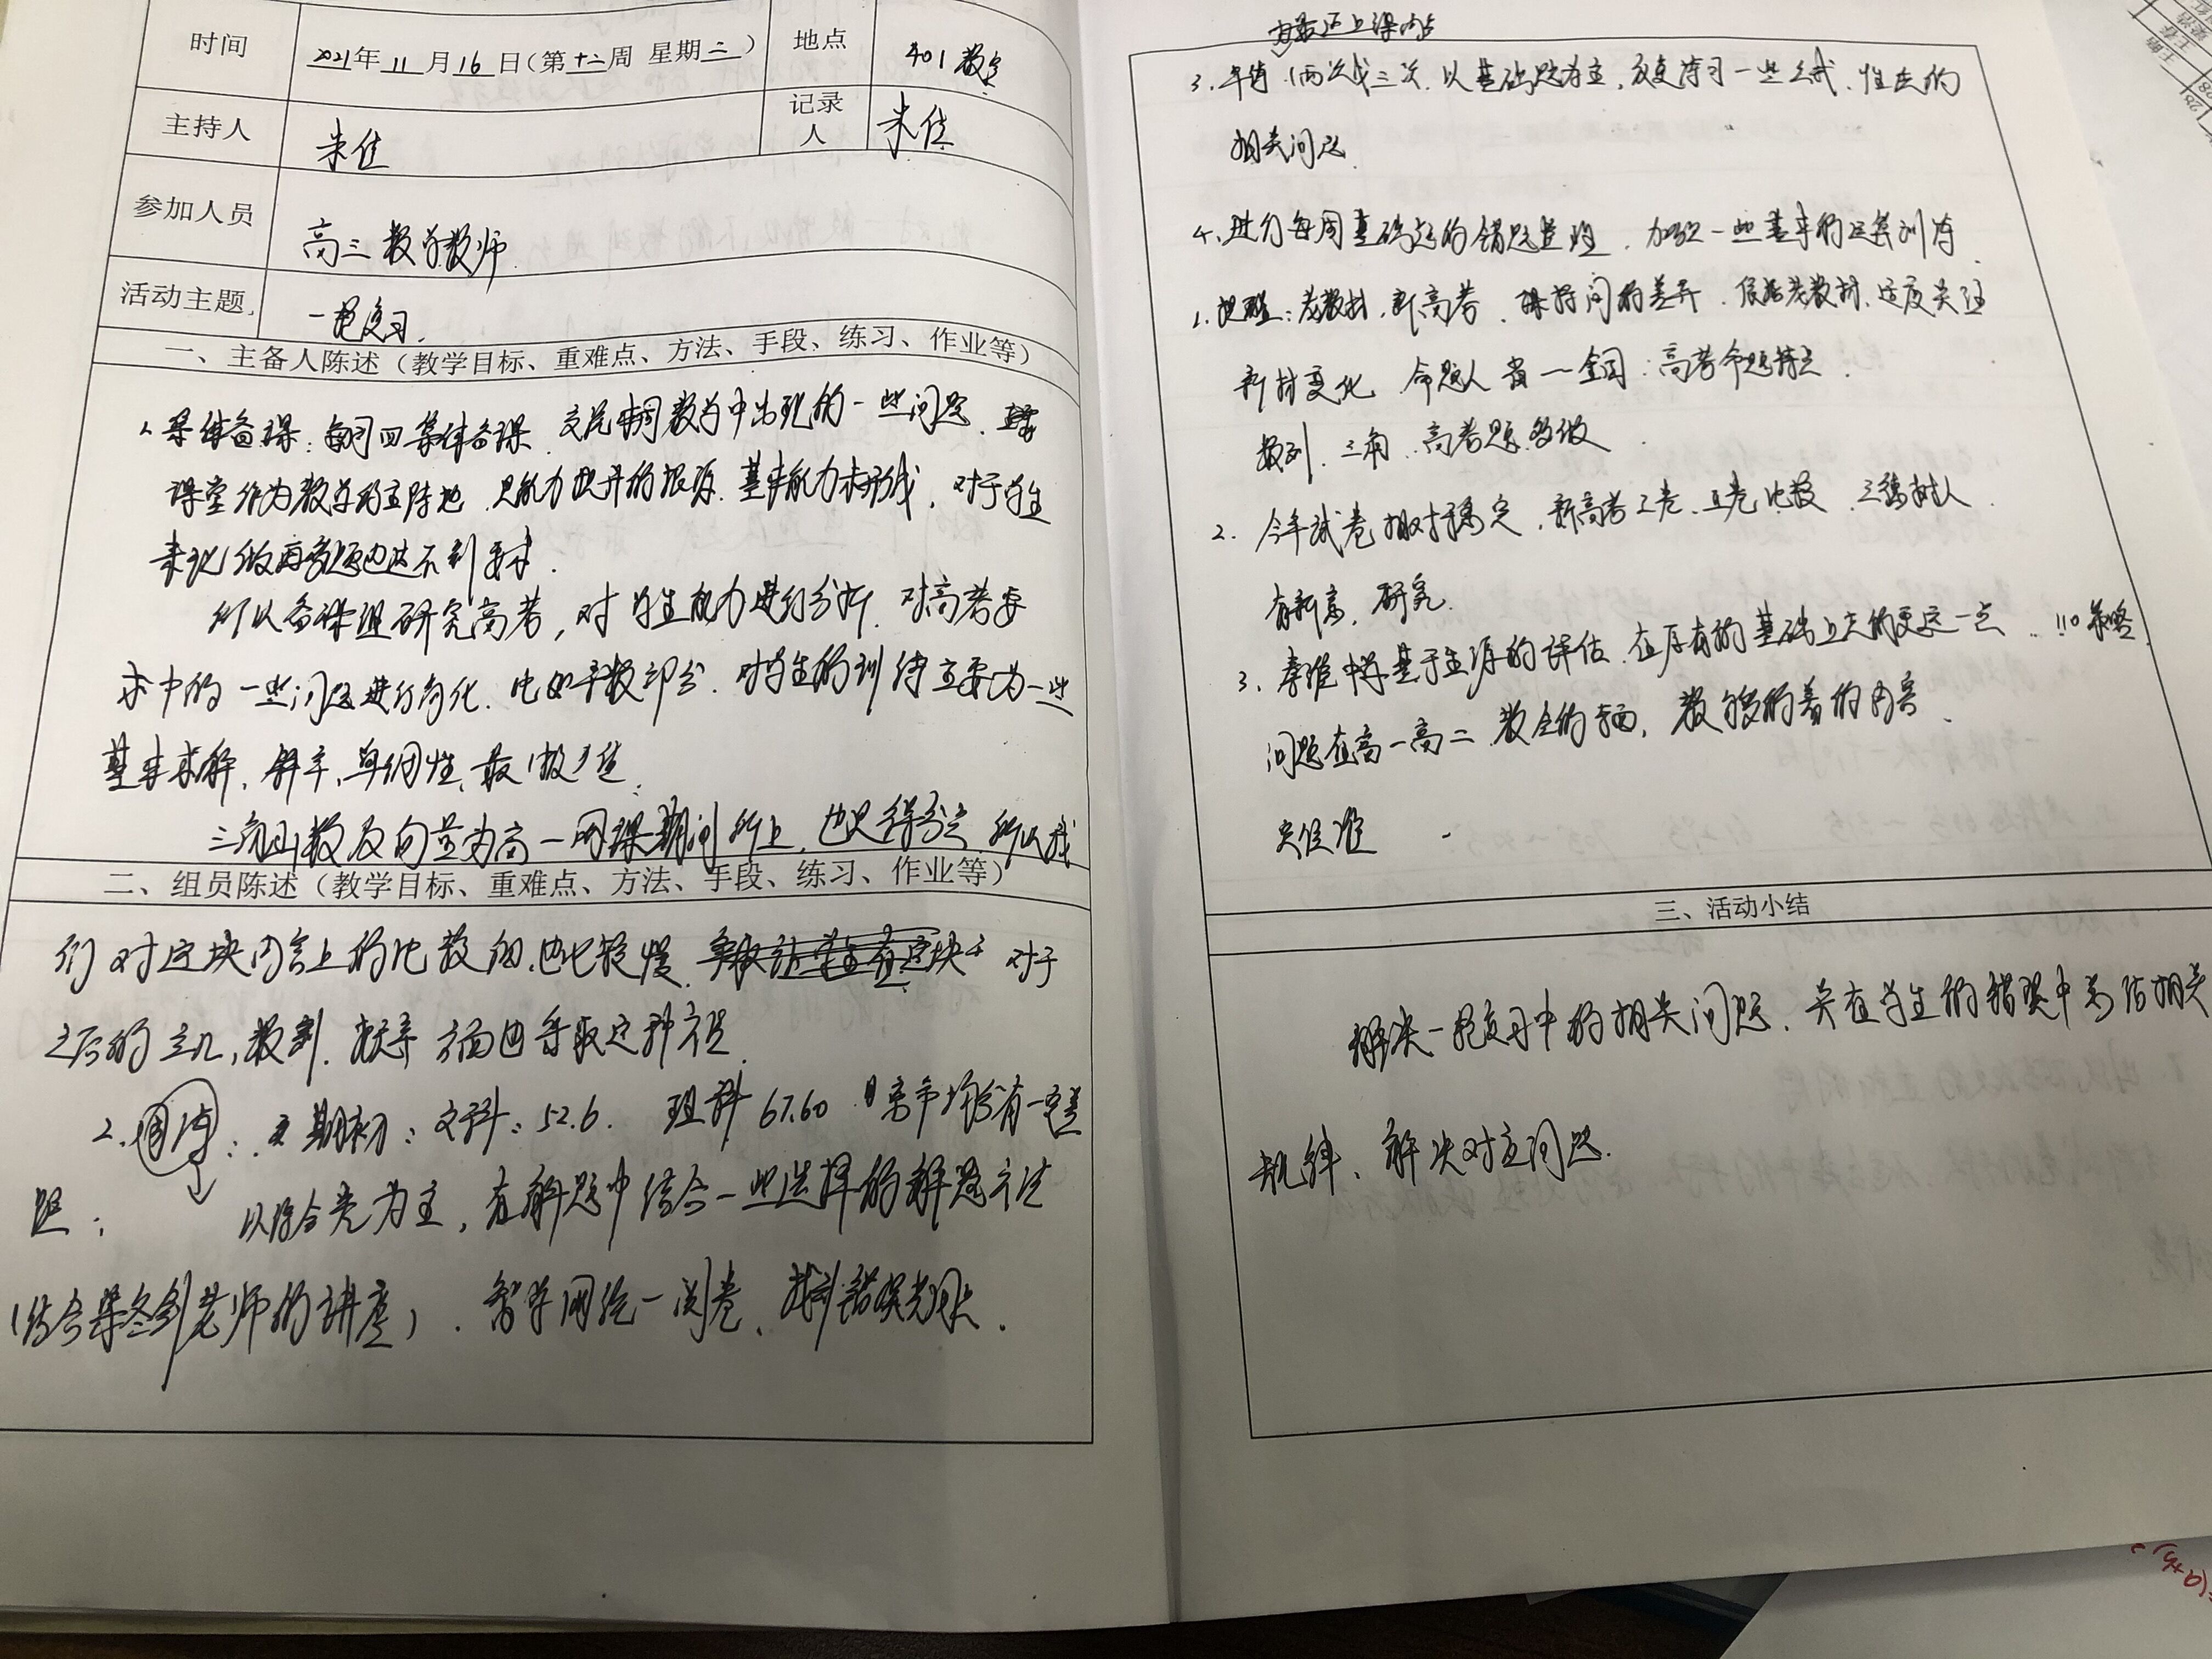 时间 2021年11月16日(第十二周 星期二) 地点 401教室
主持人 朱佳 记录人 朱佳
参加人员 高三数学教师
活动主题 一轮复习.
一、主备人陈述（教学目标、重难点、方法、手段、练习、作业等）
1. 集体备课: 每周四集体备课. 交流本周教学中出现的一些问题.
课堂作为教学的主阵地 是能力提升的根源. 基本能力未形成, 对于学生
来说做再多题也达不到要求.
所以备课组研究高考, 对学生能力进行分析. 对高考要
求中的一些问题进行简化. 比如导数部分. 对学生的训练主要为一些
基本求解, 斜率, 单调性, 最值
三角函数及向量为高一网课期间所上, 也是得分点, 所以我
二、组员陈述（教学目标、重难点、方法、手段、练习、作业等）
们对这块内容上的比较细, 也比较慢. 对于
之后的立几, 数列, 概率方面也采取这种方法.
2. 周练: 期初: 文科: 52.6. 理科 67.60 均分有一定差
距; 以综合卷为主, 在解题中结合一些选择的解题方法
(结合 老师的讲座). 智学网统一阅卷, 找到错误
上课内容
3. 午练 (两次或三次. 以基础题为主, 反复练习一些公式, 性质的
相关问题.
4. 进行每周基础题的错题整理, 加强一些基本的运算训练.
1. 老教材, 新高考, 间的差异. 依据老教材, 适度关注
新材变化. 命题人 高考命题特点.
数列, 三角, 高考题多做
2. 今年试卷相对稳定, 新高考I卷, II卷比较
有新意, 研究.
3. 基于生源的评估. 在原有的基础上走的更远一点 策略
问题在高一高二
三、活动小结
解决一轮复习中的相关问题, 并在学生的错误中总结相关
规律, 解决对应问题.